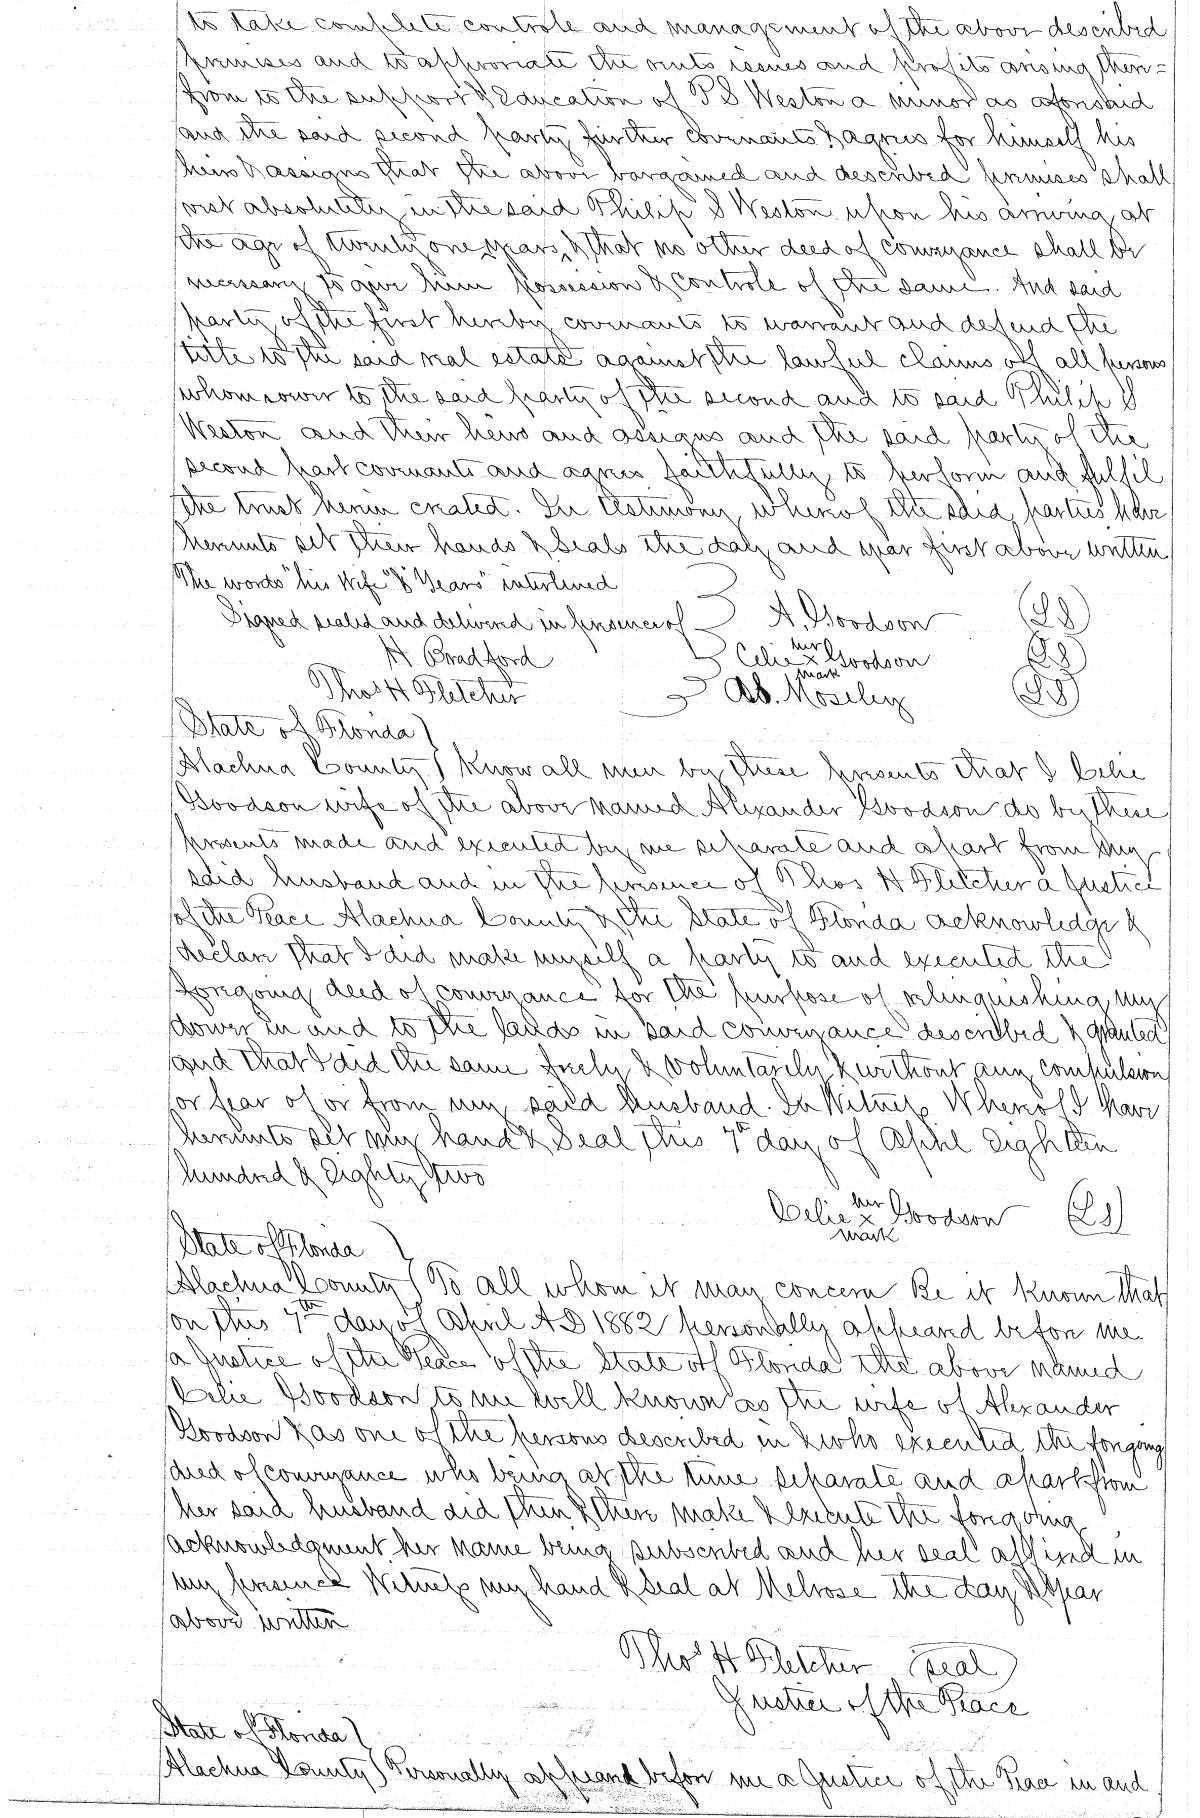 to take complete controle and management of the above described
premises and to approriate the rents issues and profits arising there=
from to the support & Education of P S Weston a minor as aforesaid
and the said second party further covenants & agrees for himself his
heirs & assigns that the above bargained and described premises shall
vest absolutely in the said Philip S Weston upon his arriving at
the age of twenty one years & that no other deed of conveyance shall be
necessary to give him possession & controle of the same. And said
party of the first hereby covenants to warrant and defend the
title to the said real estate against the lawful claims off all persons
whomsoever to the said party of the second and to said Philip S
Weston and their heirs and assigns and the said party of the
second part covenants and agrees faithfully to perform and fulfil
the trust herein created. In testimony whereof the said parties have
hereunto set their hands & seals the day and year first above written
The words "his Wife" & "Years" interlined
Signed sealed and delivered in presence of A. Goodson (LS)
H Bradford Celie her x mark Goodson (LS)
Thos H Fletcher Ab. Moseley (LS)
State of Florida )
Alachua County ) Know all men by these presents that I Celie
Goodson wife of the above named Alexander Goodson do by these
presents made and executed by me separate and apart from my
said husband and in the presence of Thos H Fletcher a Justice
of the Peace Alachua County & the State of Florida acknowledge &
declare that I did make myself a party to and executed the
foregoing deed of conveyance for the purpose of relinquishing my
dower in and to the lands in said conveyance described & granted
and that I did the same freely & voluntarily & without any compulsion
or fear of or from my said husband. In Witness Whereof I have
hereunto set my hand & Seal this 7th day of April Eighteen
hundred & Eighty two
Celie her x mark Goodson (LS)
State of Florida )
Alachua County ) To all whom it may concern Be it Known that
on this 7th day of April AD 1882 personally appeared before me
a Justice of the Peace of the State off Florida the above named
Celie Goodson to me well known as the wife of Alexander
Goodson & as one of the persons described in & who executed the forgoing
deed of conveyance who being at the time separate and apart from
her said husband did then & there make & execute the foregoing
acknowledgment her name being subscribed and her seal affixed in
my presence Witness my hand & Seal at Melrose the day & year
above written
Thos H Fletcher (seal)
Justice of the Peace
State of Florida )
Alachua County ) Personally appeared before me a Justice of the Peace in and